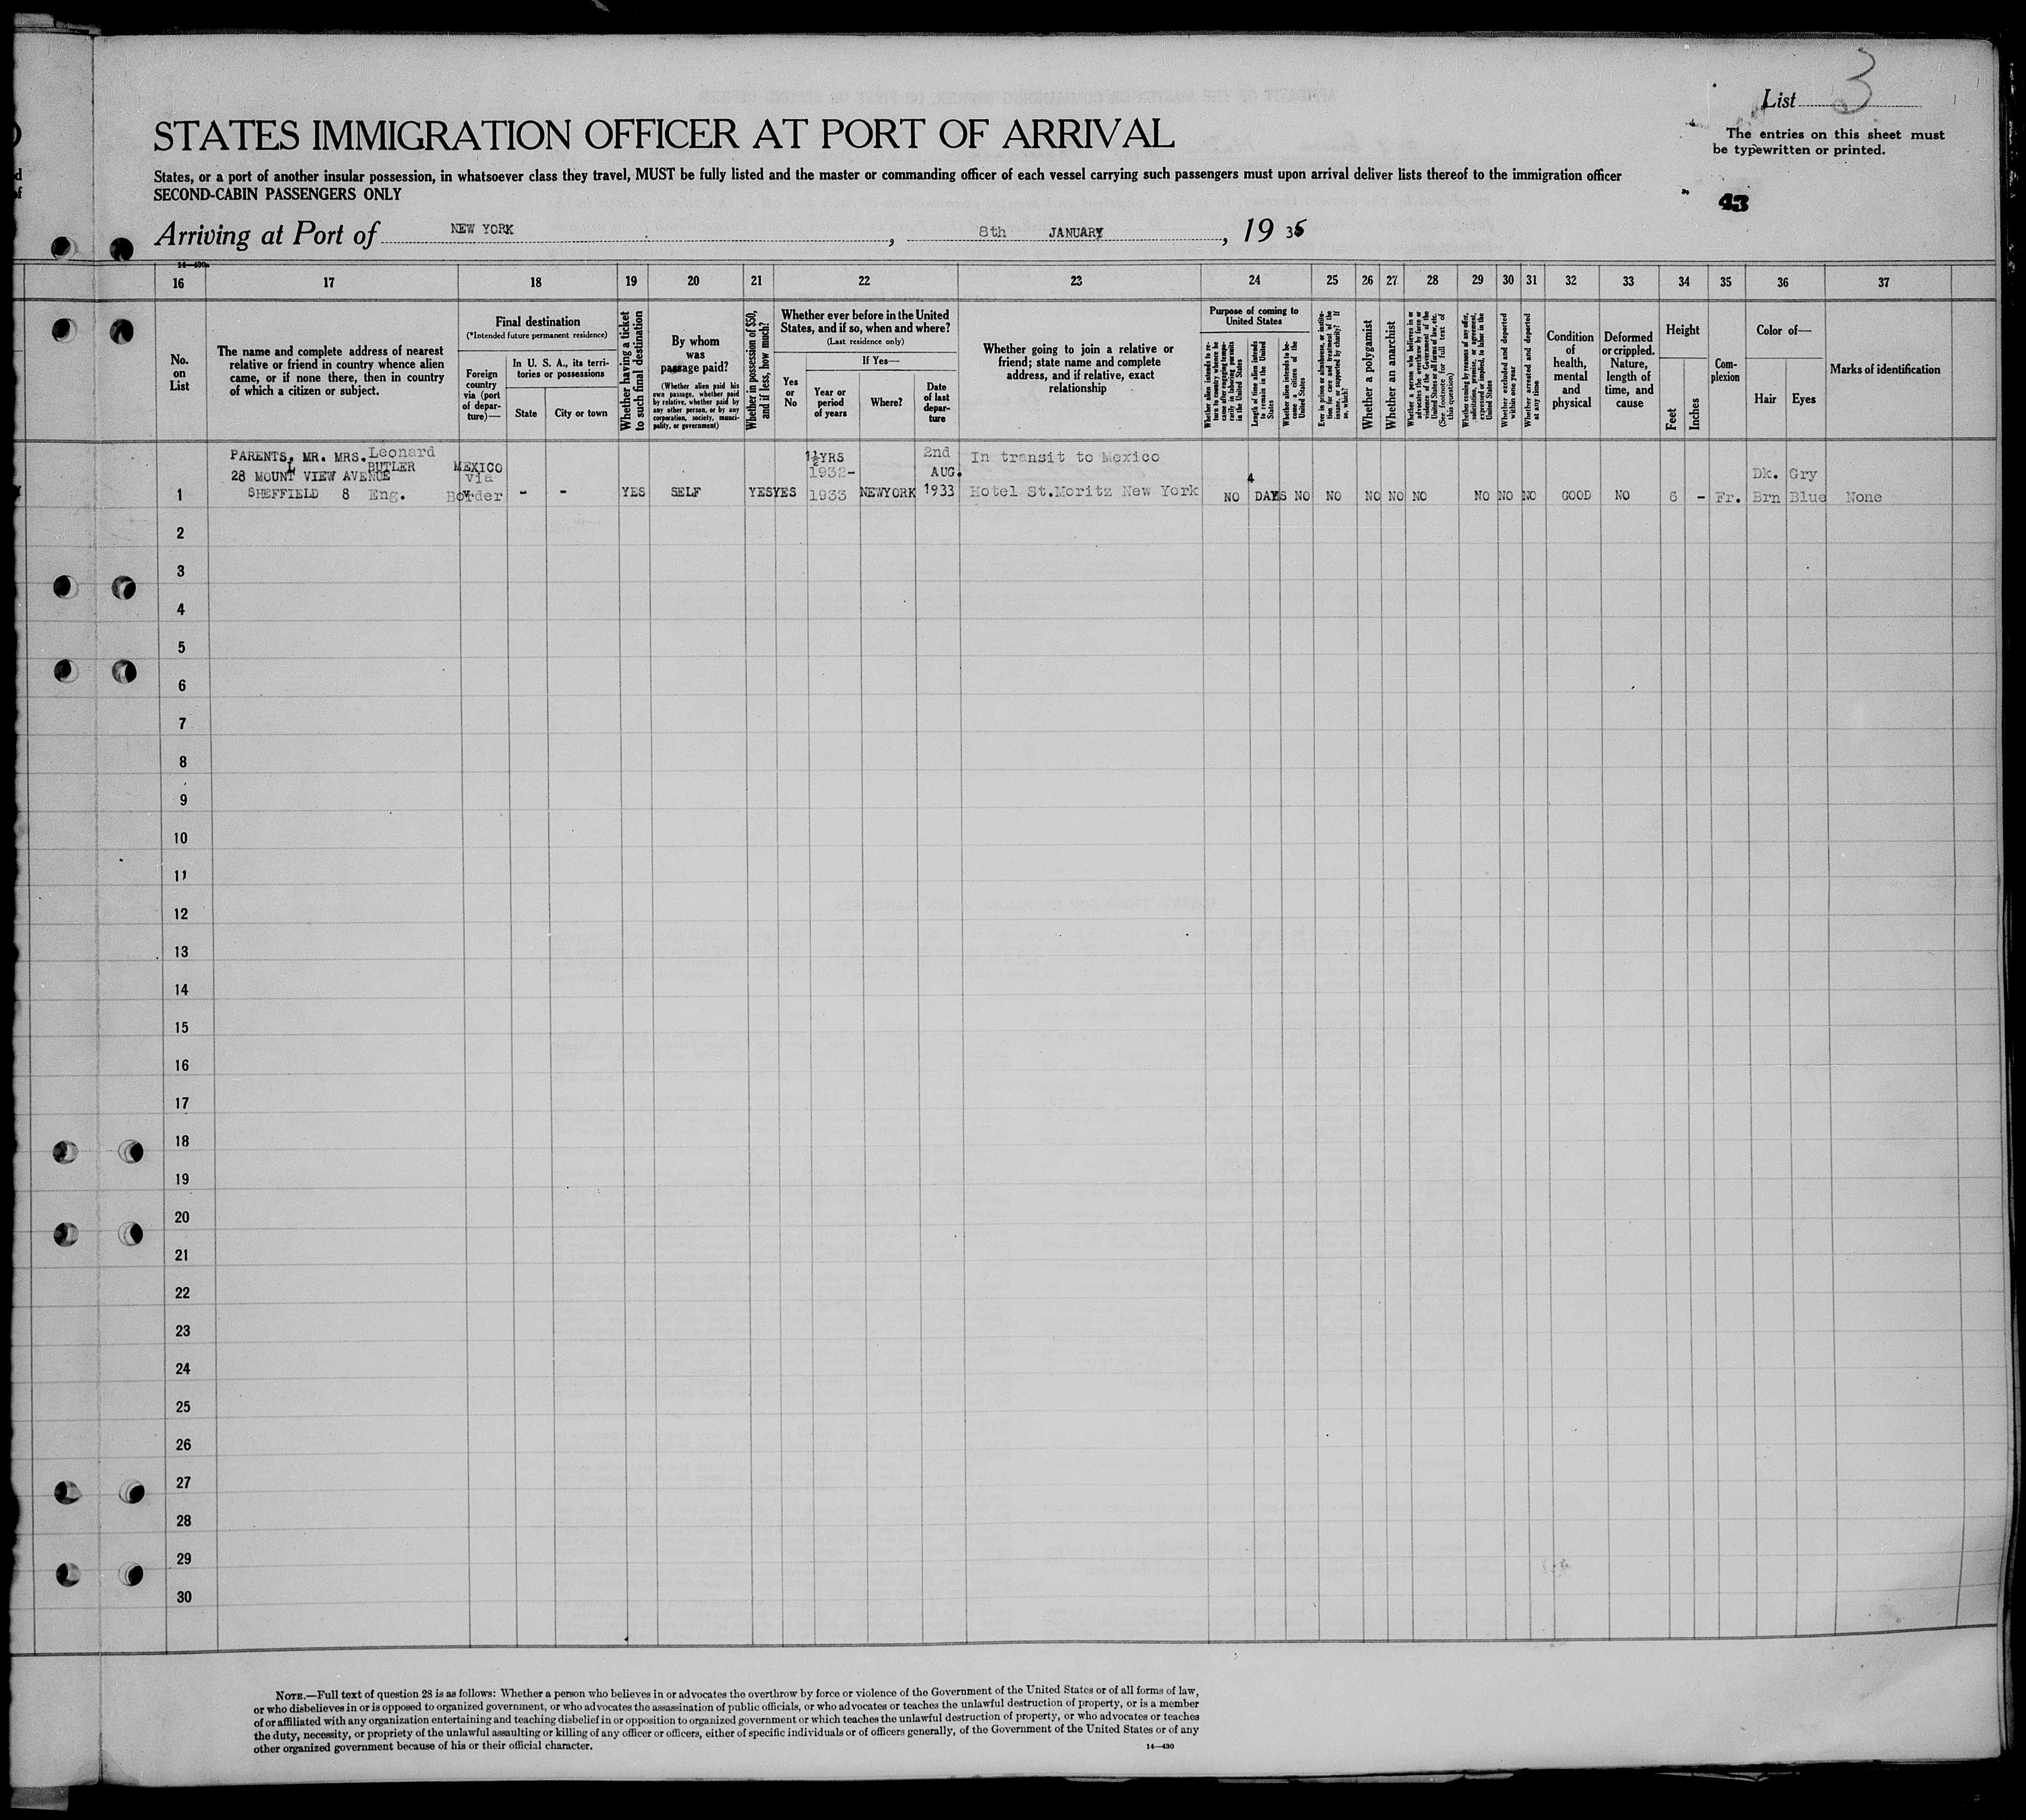 List 3
The entries on this sheet must
be typewritten or printed.
STATES IMMIGRATION OFFICER AT PORT OF ARRIVAL
States, or a port of another insular possession, in whatsoever class they travel, MUST be fully listed and the master or commanding officer of each vessel carrying such passengers must upon arrival deliver lists thereof to the immigration officer
SECOND-CABIN PASSENGERS ONLY
43
Arriving at Port of NEW YORK, 8th JANUARY, 19 35
14—430a
16 17 18 19 20 21 22 23 24 25 26 27 28 29 30 31 32 33 34 35 36 37
No.
on
List
The name and complete address of nearest
relative or friend in country whence alien
came, or if none there, then in country
of which a citizen or subject.
Final destination
(*Intended future permanent residence)
Foreign
country
via (port
of depar-
ture)—
In U. S. A., its terri-
tories or possessions
State
City or town
Whether having a ticket
to such final destination
By whom
was
passage paid?
(Whether alien paid his
own passage, whether paid
by relative, whether paid by
any other person, or by any
corporation, society, munici-
pality, or government)
Whether in possession of $50,
and if less, how much?
Whether ever before in the United
States, and if so, when and where?
(Last residence only)
Yes
or
No
If Yes—
Year or
period
of years
Where?
Date
of last
depar-
ture
Whether going to join a relative or
friend; state name and complete
address, and if relative, exact
relationship
Purpose of coming to
United States
Whether alien intends to re-
turn to country whence he
came after engaging tempo-
rarily in laboring pursuits
in the United States
Length of time alien intends
to remain in the United
States
Whether alien intends to be-
come a citizen of the
United States
Ever in prison or almshouse, or institu-
tion for care and treatment of the
insane, or supported by charity? If
so, which?
Whether a polygamist
Whether an anarchist
Whether a person who believes in or
advocates the overthrow by force or
violence of the Government of the
United States or all forms of law, etc.
(See footnote for full text of
this question)
Whether coming by reasons of any offer,
solicitation, promise, or agreement,
expressed or implied, to labor in the
United States
Whether excluded and deported
within one year
Whether arrested and deported
at any time
Condition
of
health,
mental
and
physical
Deformed
or crippled.
Nature,
length of
time, and
cause
Height
Feet
Inches
Com-
plexion
Color of—
Hair
Eyes
Marks of identification
PARENTS. MR. MRS. Leonard
L BUTLER
28 MOUNT VIEW AVENUE
SHEFFIELD 8 Eng.
MEXICO
via
Border
1 - - YES SELF YES YES
1½YRS
1932-
1933
NEWYORK
2nd
AUG.
1933
In transit to Mexico
Hotel St.Moritz New York
NO
4
DAYS NO NO NO NO NO NO NO NO GOOD NO 6 - Fr.
Dk. Gry
Brn Blue None
2
3
4
5
6
7
8
9
10
11
12
13
14
15
16
17
18
19
20
21
22
23
24
25
26
27
28
29
30
NOTE.—Full text of question 28 is as follows: Whether a person who believes in or advocates the overthrow by force or violence of the Government of the United States or of all forms of law,
or who disbelieves in or is opposed to organized government, or who advocates the assassination of public officials, or who advocates or teaches the unlawful destruction of property, or is a member
of or affiliated with any organization entertaining and teaching disbelief in or opposition to organized government or which teaches the unlawful destruction of property, or who advocates or teaches
the duty, necessity, or propriety of the unlawful assaulting or killing of any officer or officers, either of specific individuals or of officers generally, of the Government of the United States or of any
other organized government because of his or their official character.
14—430